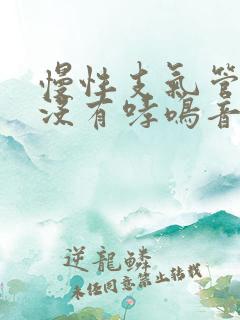 慢性支氣管
沒有哮鳴音
逆龍鱗
未经同意禁止转载